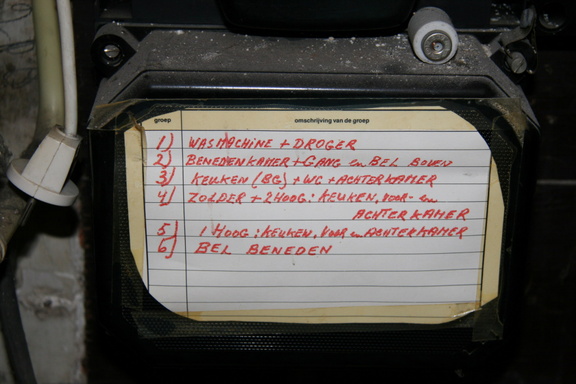 groep omschrijving van de groep
1) WASMACHINE + DROGER
2) BENEDENKAMER + GANG en BEL BOVEN
3) KEUKEN (BG) + WC + ACHTERKAMER
4) ZOLDER + 2HOOG: KEUKEN, VOOR- en
ACHTERKAMER
5) 1 HOOG: KEUKEN, VOOR en ACHTERKAMER
6) BEL BENEDEN